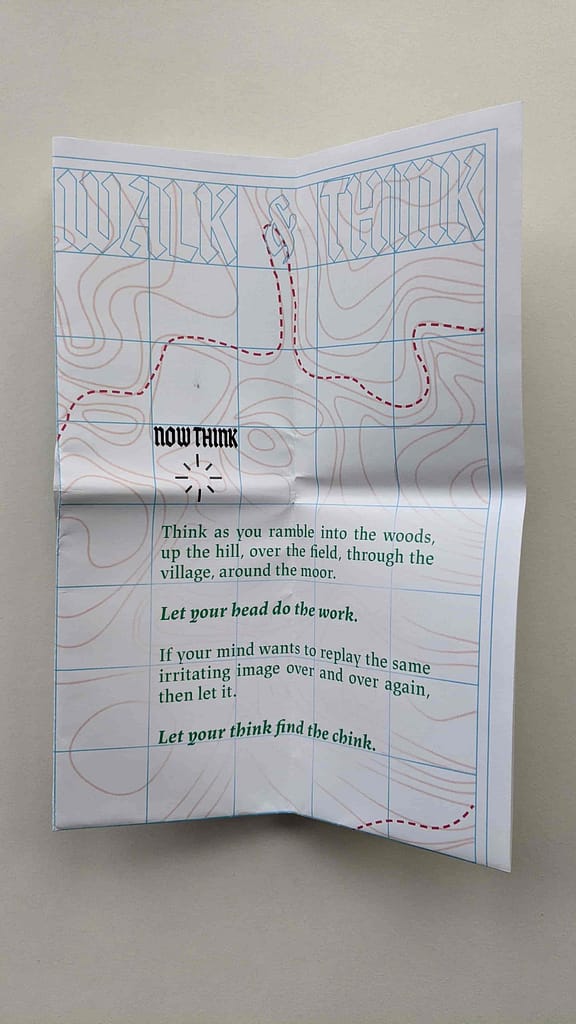 WALK & THINK
NOW THINK
Think as you ramble into the woods,
up the hill, over the field, through the
village, around the moor.
Let your head do the work.
If your mind wants to replay the same
irritating image over and over again,
then let it.
Let your think find the chink.